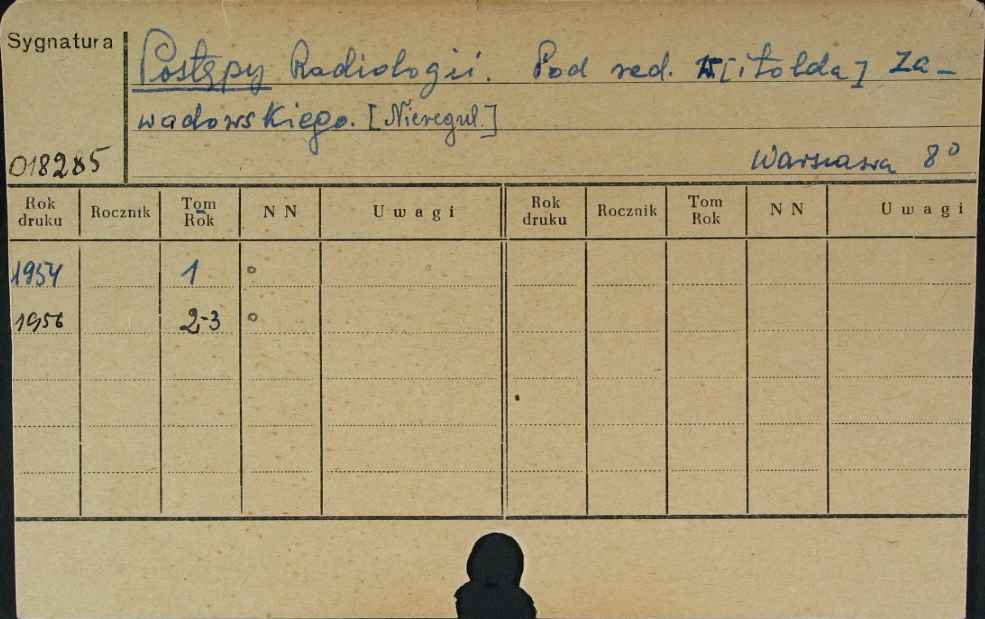 Sygnatura
Postępy Radiologii. Pod red. W[itolda] Za-
wadowskiego. [Nieregul.]
018285
Warszawa 8°
Rok druku Rocznik Tom Rok N N Uwagi Rok druku Rocznik Tom Rok N N Uwagi
1954 1 °
1956 2-3 °